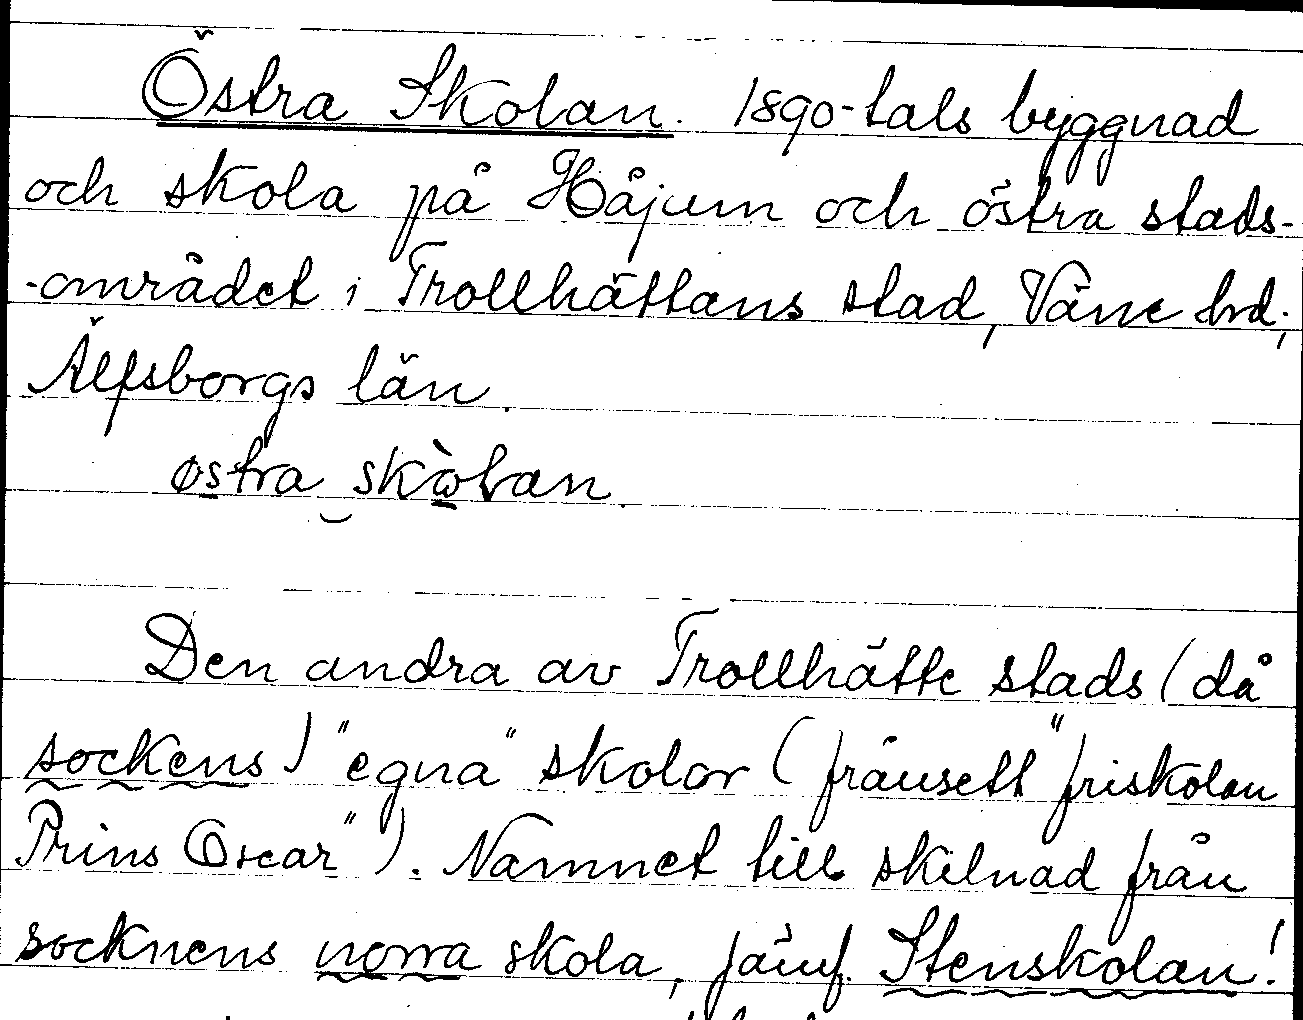 Östra Skolan. 1890-tals byggnad
och skola på Håjum och östra stads-
-området i Trollhättans stad, Väne hd;
Älfsborgs län.
østra skòlan.
Den andra av Trollhätte stads (då
sockens) "egna" skolor (frånsett "friskolan
Prins Oscar"). Namnet till skilnad från
socknens norra skola, jämf. Stenskolan!